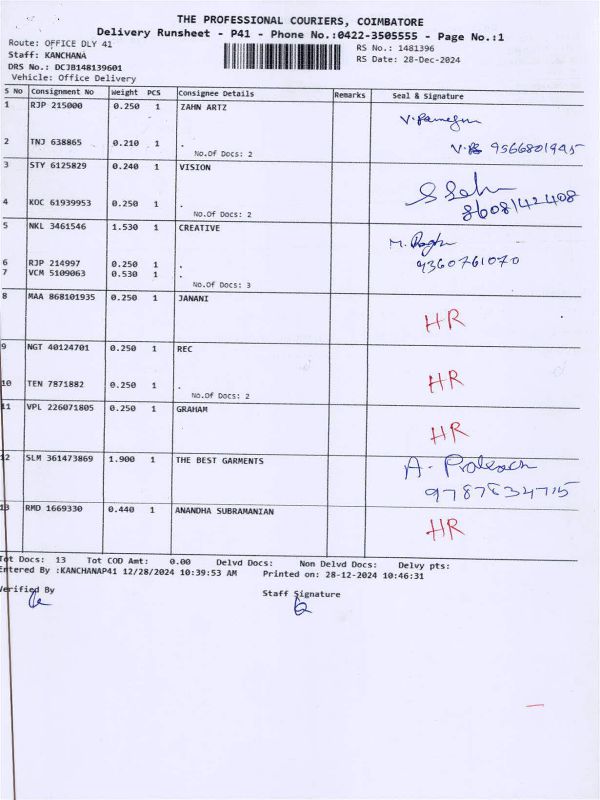 THE PROFESSIONAL COURIERS, COIMBATORE
Delivery Runsheet - P41 - Phone No.:0422-3505555 - Page No.:1
Route: OFFICE DLY 41
RS No.: 1481396
Staff: KANCHANA
RS Date: 28-Dec-2024
DRS No.: DCJB148139601
Vehicle: Office Delivery
S No Consignment No Weight PCS Consignee Details Remarks Seal & Signature
1 RJP 215000 0.250 1 ZAHN ARTZ
2 TNJ 638865 0.210 1 . 9566801945
No.Of Docs: 2
3 STY 6125829 0.240 1 VISION
4 KOC 61939953 0.250 1 . 8608142408
No.Of Docs: 2
5 NKL 3461546 1.530 1 CREATIVE
6 RJP 214997 0.250 1 . 9360761070
7 VCM 5109063 0.530 1 .
No.Of Docs: 3
8 MAA 868101935 0.250 1 JANANI HR
9 NGT 40124701 0.250 1 REC
10 TEN 7871882 0.250 1 . HR
No.Of Docs: 2
11 VPL 226071805 0.250 1 GRAHAM HR
12 SLM 361473869 1.900 1 THE BEST GARMENTS
13 RMD 1669330 0.440 1 ANANDHA SUBRAMANIAN HR
Tot Docs: 13 Tot COD Amt: 0.00 Delvd Docs: Non Delvd Docs: Delvy pts:
Entered By :KANCHANAP41 12/28/2024 10:39:53 AM Printed on: 28-12-2024 10:46:31
Verified By
Staff Signature